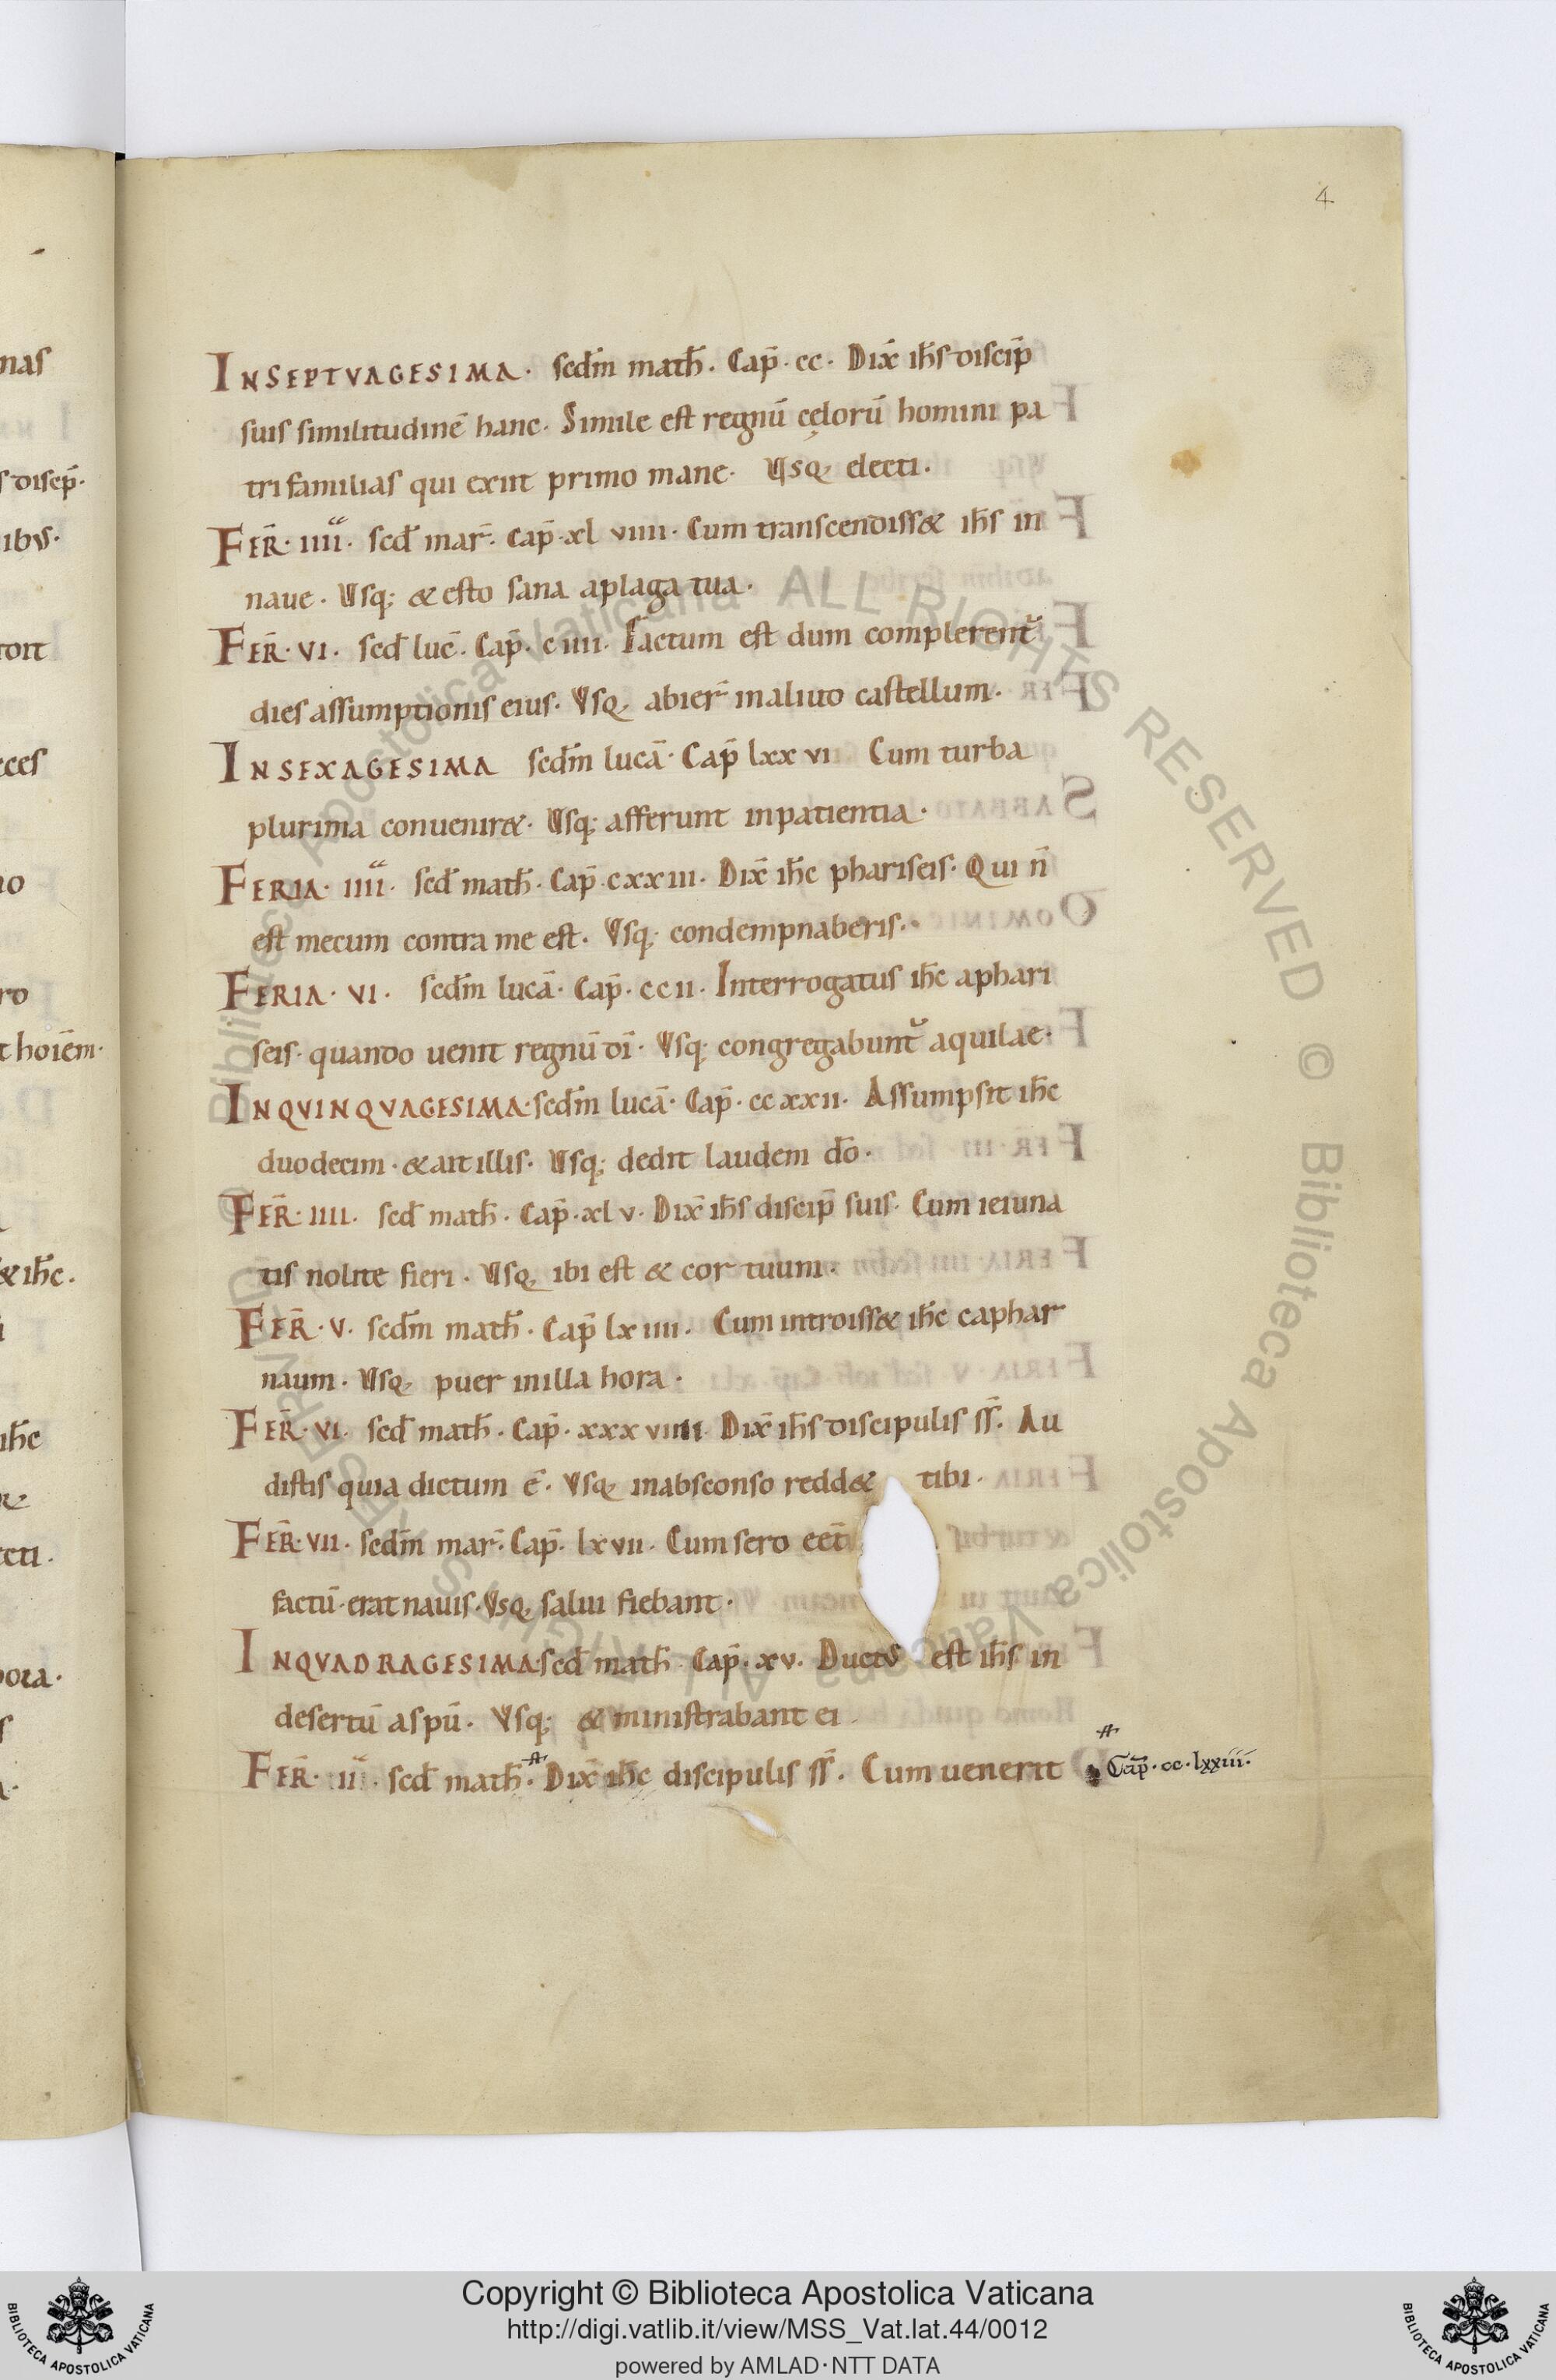 4
IN SEPTVAGESIMA. scđm math̄. Cap̄. cc. Dix̄ ih̄s discip̄
suis similitudinē hanc. Simile est regnū cęlorū homini pa
tri familias qui exiit primo mane. Vsq; electi.
FER̄. IIII. scđ mar̄. Cap̄. xl viiii. Cum transcendiss& ih̄s in
naue. Vsq; & esto sana aplaga tua.
FER̄. VI. scđ luc̄. Cap̄. ciiii. Factum est dum complerent᷑
dies assumptionis eius. Vsq; abier̄ inaliuo castellum.
IN SEXAGESIMA scđm lucā. Cap̄ lxx vi Cum turba
plurima conuenir&. Vsq; afferunt inpatientia.
FERIA. IIII. scđ math̄. Cap̄. cxxiii. Dix̄ ih̄c phariseis. Qui n̄
est mecum contra me est. Vsq; condempnaberis.
FERIA. VI. scđm lucā. Cap̄. ccii. Interrogatus ih̄c aphari
seis. quando uenit regnū dī. Vsq; congregabunt᷑ aquilae.
IN QVINQVAGESIMA. scđm lucā. Cap̄. cc xxii. Assumpsit ih̄c
duodecim. & ait illis. Vsq; dedit laudem dō.
FER̄. IIII. scđ math̄. Cap̄. xl v. Dix̄ ih̄s discip̄ suis. Cum ieiuna
tis nolite fieri. Vsq; ibi est & cor tuum.
FER̄. V. scđm math̄. Cap̄ lx iiii. Cum introiss& ih̄c caphar
naum. Vsq; puer inilla hora.
FER̄. VI. scđ math̄. Cap̄. xxx viiii. Dix̄ ih̄s discipulis ss̄. Au
distis quia dictum ē. Vsq; inabsconso redd& tibi.
FER̄. VII. scđm mar̄. Cap̄. lx vii. Cum sero eēt
factū. erat nauis. Vsq; salui fiebant.
IN QVADRAGESIMA. scđ math̄. Cap̄. xv. Ductus est ih̄s in
desertū aspū. Vsq; & ministrabant ei.
FER̄. II. scđ math̄. Dix̄ ih̄c discipulis ss̄. Cum uenerit
Cap̄. cc. lxxiii.
nas
s discp̄.
ibus.
ces
ro
t hoiēm.
& ih̄c.
ih̄c
cti.
Biblioteca Apostolica Vaticana ALL RIGHTS RESERVED © Biblioteca Apostolica Vaticana ALL RIGHTS RESERVED ©
Copyright © Biblioteca Apostolica Vaticana
http://digi.vatlib.it/view/MSS_Vat.lat.44/0012
powered by AMLAD·NTT DATA
BIBLIOTECA APOSTOLICA VATICANA
BIBLIOTECA APOSTOLICA VATICANA